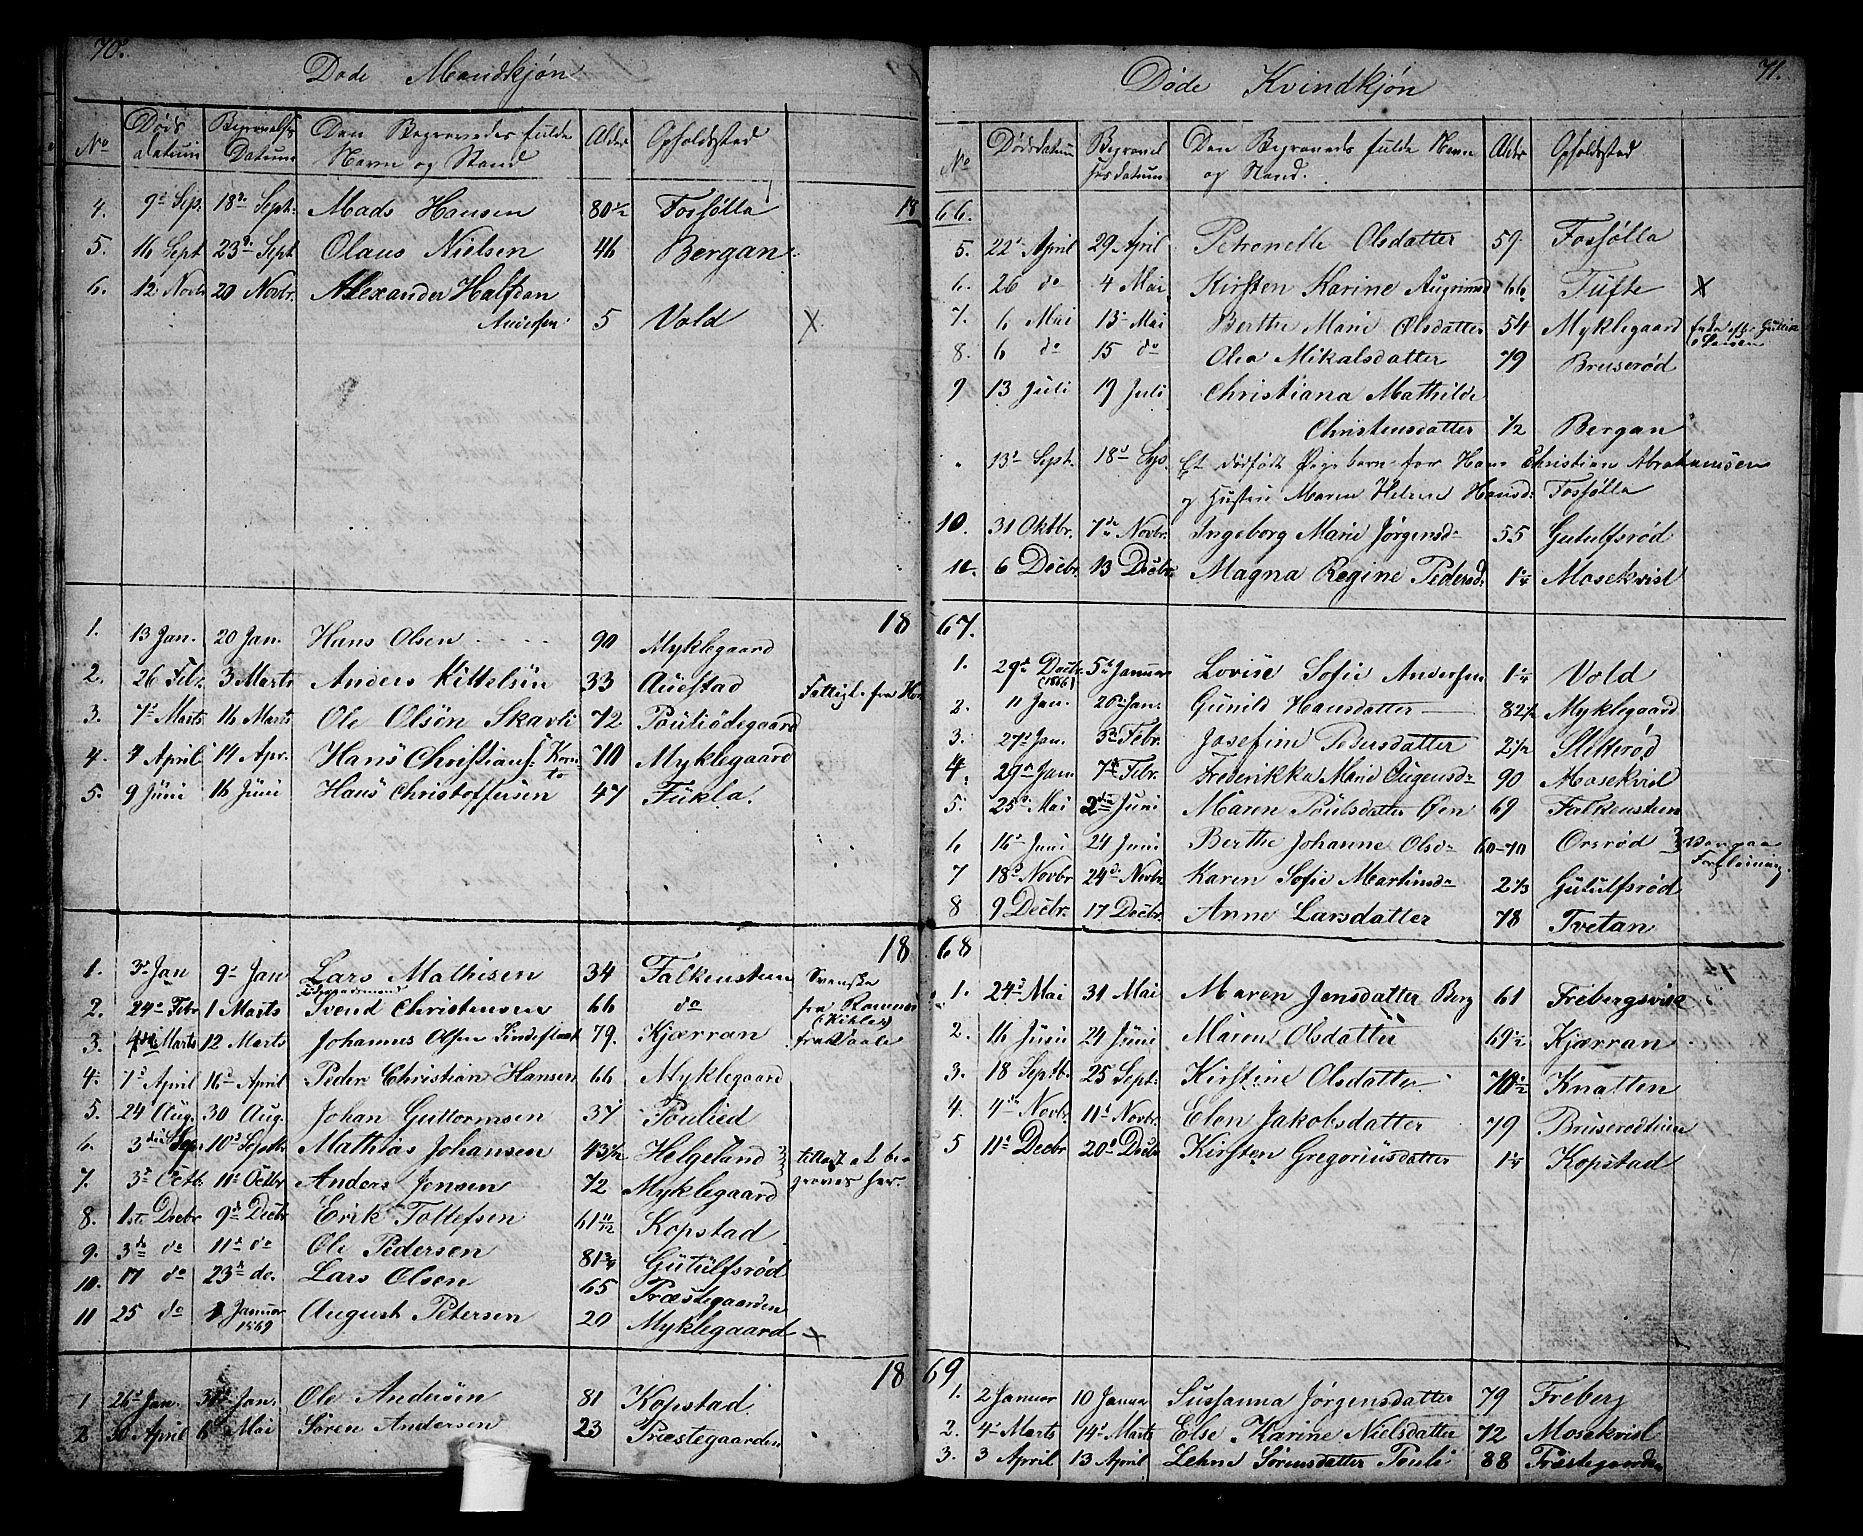 70.
Døde Mandkjøn
No
Døds datum
Begravelses Datum
Den Begravedes fulde Navn og Stand
Alder
Opholdssted
18
4. 9d Sep. 18de Sept. Mads Hansen 80½ Fossølla
5. 16 Sept 23de Sept Olaus Nielsen 46 Bergan
6. 12 Novbr 20 Novbr. Alexander Halfdan
Andersen 5 Vold X
18
1. 13 Jan. 20 Jan. Hans Olsen 90 Myklegaard
2. 26 Febr. 3 Marts Anders Kittelsen 33 Auestad Fattigl. fra
3. 7d Marts 16 Marts Ole Olsøn Skavli 72
4. 7 April 14 Apr. Hans Christians. 70 Myklegaard
5. 9 Juni 16 Juni Hans Christoffersen 47 Fukla
18
1. 3d Jan 9d Jan Lars Mathisen 34 Falkensteen Svenske
2. 24d Febr 1 Marts Svend Christensen 66 do fra Ramnes
3. Marts 12 Marts Johannes Olsen 79. Kjærran fra Vaale
4. 7d April 16d April Peder Christian Hansen 66 Myklegaard
5. 24 Aug. 30 Aug. Johan Guttormsen 37 Poulied
6. 3die Sepr 10d Septbr Mathias Johansen Helgeland tilladt at be-
7. 3d Octb. 11d Octbr Anders Jensen 72 Myklegaard graves her.
8. 1ste Decbr 9d Decbr Erik Tollefsen 61 11/12 Kopstad
9. 3de do 11d do Ole Pedersen 81¾ Gutulfsrød
10. 17 do 23d do. Lars Olsen 65 Præstegaarden
11 25 do Januar 1869 August Petersen 20 Myklegaard X
18
1 26d Jan. 31d Jan. Ole Andersen 81 Kopstad
2 30 April 6 Mai Søren Andersen 23 Præstegaarden
71.
Døde Kvindkjøn
No
Dødsdatum
Begravelsesdatum
Den Begravedes fulde Navn og Stand.
Alder
Opholdssted
66.
5. 22d April 29 April Petronelle Olsdatter 59 Fossølla
6. 26 do 4 Mai Kirsten Karine 66 Tufte X
7. 6 Mai 13d Mai Berthe Marie Olsdatter 54 Myklegaard Enke efter
8. 6 do 15 do Olea Mikalsdatter 79 Bruserød
9 13 Juli 19 Juli Christiana Mathilde
Christensdatter ½ Bergan
" 13d Sept. 18d Sep. Et dødfødt Pigebarn for Hans Christian Abrahamsen
og Hustru Maren Helene Hansd. Fossølla
10. 31 Oktbr. 7de Novbr. Ingeborg Marie Jørgensd. 55 Gutulfsrød
11. 6 Decbr. 13 Decbr. Magna Regine Pedersd. 1¼ Mosekvist
67.
1. 29d Decbr. (1866) 5te Januar Lovise Sofie Andersen 1¼ Vold
2. 11 Jan. 20d Jan. Gunild Hansdatter 82½ Myklegaard
3. 27d Jan. 3d Febr. Josefine Pedersdatter 2½ Sletterød
4. 29d Jan. 7d Febr. Frederikka Marie 90 Mosekvist
5. 25d Mai 2den Juni Maren Poulsdatter Øen 69 Falkensteen
6 16d Juni 24 Juni Berthe Johanne Olsd. 60-70 Orsrød
7 18d Novbr 24d Novbr. Karen Sofie Martinsd. 2⅓ Gutulfsrød
8 9 Decbr. 17 Decbr. Anne Larsdatter 78 Tvetan
68
1. 24d Mai 31 Mai Maren Jensdatter Berg 61 Frebergsvik
2. 16 Juni 24 Juni Maren Olsdatter 69½ Kjærran
3. 18 Septb. 25 Sept. Kirstine Olsdatter 70½ Knatten
4. 4d Novbr. 11d Novbr. Elen Jakobsdatter 79
5 11d Decbr 20d Decbr Kirsten Gregoriusdatter 1¼ Kopstad
69
1. 2 Januar 10 Januar Susanna Jørgensdatter 79 Freberg
2. 4d Marts 14d Marts Else Karine Nielsdatter 72 Mosekvist
3. 3 April 13 April Lehne Sørensdatter Pouli 88 Præstegaarden